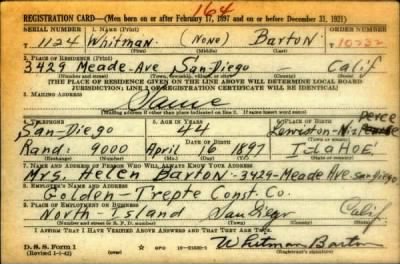 164
REGISTRATION CARD—(Men born on or after February 17, 1897 and on or before December 31, 1921)
SERIAL NUMBER 1. NAME (Print) ORDER NUMBER
T 1124 Whitman (None) Barton T 10222
(First) (Middle) (Last)
2. PLACE OF RESIDENCE (Print)
3429 Meade-Ave San-Diego - Calif
(Number and street) (Town, township, village, or city) (County) (State)
[THE PLACE OF RESIDENCE GIVEN ON THE LINE ABOVE WILL DETERMINE LOCAL BOARD
JURISDICTION; LINE 2 OF REGISTRATION CERTIFICATE WILL BE IDENTICAL]
3. MAILING ADDRESS
Same
[Mailing address if other than place indicated on line 2. If same insert word same]
4. TELEPHONE 5. AGE IN YEARS 6. PLACE OF BIRTH
Perce
San-Diego 44 Lewiston-Nez
DATE OF BIRTH (Town or county)
Rand: 9000 April 16 1897 IdaHOE
(Exchange) (Number) (Mo.) (Day) (Yr.) (State or country)
7. NAME AND ADDRESS OF PERSON WHO WILL ALWAYS KNOW YOUR ADDRESS
Mrs. Helen Barton-3429-Meade Ave-San-Diego
8. EMPLOYER'S NAME AND ADDRESS
Golden-Trepte Const. Co.
9. PLACE OF EMPLOYMENT OR BUSINESS
North Island San Diego Calif
(Number and street or R. F. D. number) (Town) (County) (State)
I AFFIRM THAT I HAVE VERIFIED ABOVE ANSWERS AND THAT THEY ARE TRUE.
D. S. S. Form 1 GPO Whitman Barton
(Revised 1-1-42) (Registrant's signature)